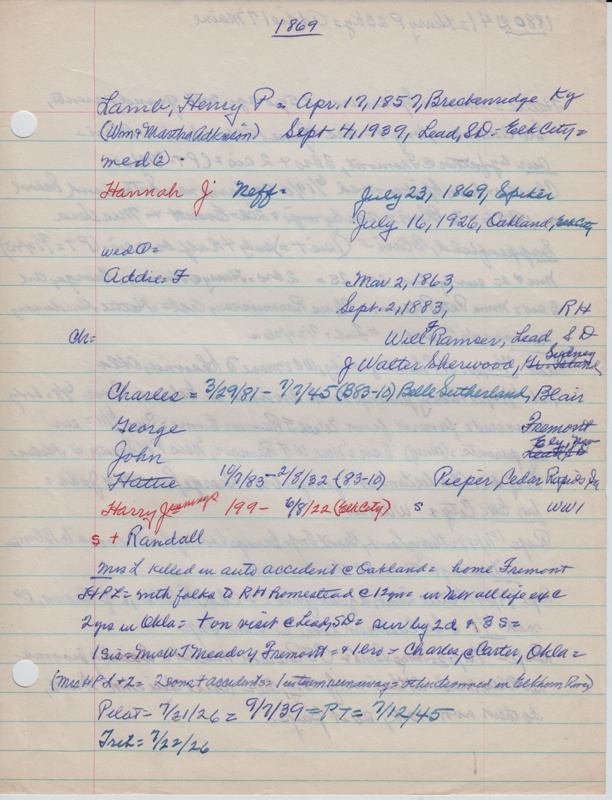 1869
Lamb, Henry P = Apr. 17, 1857, Breckenridge Ky
(Wm & Martha Adkinson) Sept 4, 1939, Lead, S.D. = Elk City =
med ② .
Hannah J Neff = July 23, 1869, 
July 16, 1926, Oakland, Elk City
wed ① =
Addie F Mar 2, 1863,
Sept. 2, 1883, RH
Ch = Will F Ramser, Lead S D
J Walter Sherwood, Sydney
Charles = 3/29/81 - 7/7/45 (B83-10) Belle Sutherland, Blair
George Fremont
John Ely, Nev
Hattie 10/7/83 - 2/8/32 (83-10) Pieper Cedar Rapids, Ia
Harry Jennings 199- 6/8/22 (Elk City) s WW1
s + Randall
Mrs L killed in auto accident @ Oakland = home Fremont
H P L = with folks to RH Homestead @ 12 yrs = in Neb all life exc
2 yrs in Okla = + on visit @ Lead, SD = sur by 2 d & 3 s =
1 sis = Mrs W T Meador, Fremont = & 1 bro = Charles, @ Carter, Okla =
(Mrs H P L + 2 = 2 sons + accidents = 1 in team runaway = other drowned in Elkhorn River)
Pilot - 7/21/26 = 9/7/39 = PT = 7/12/45
Trib = 7/22/26